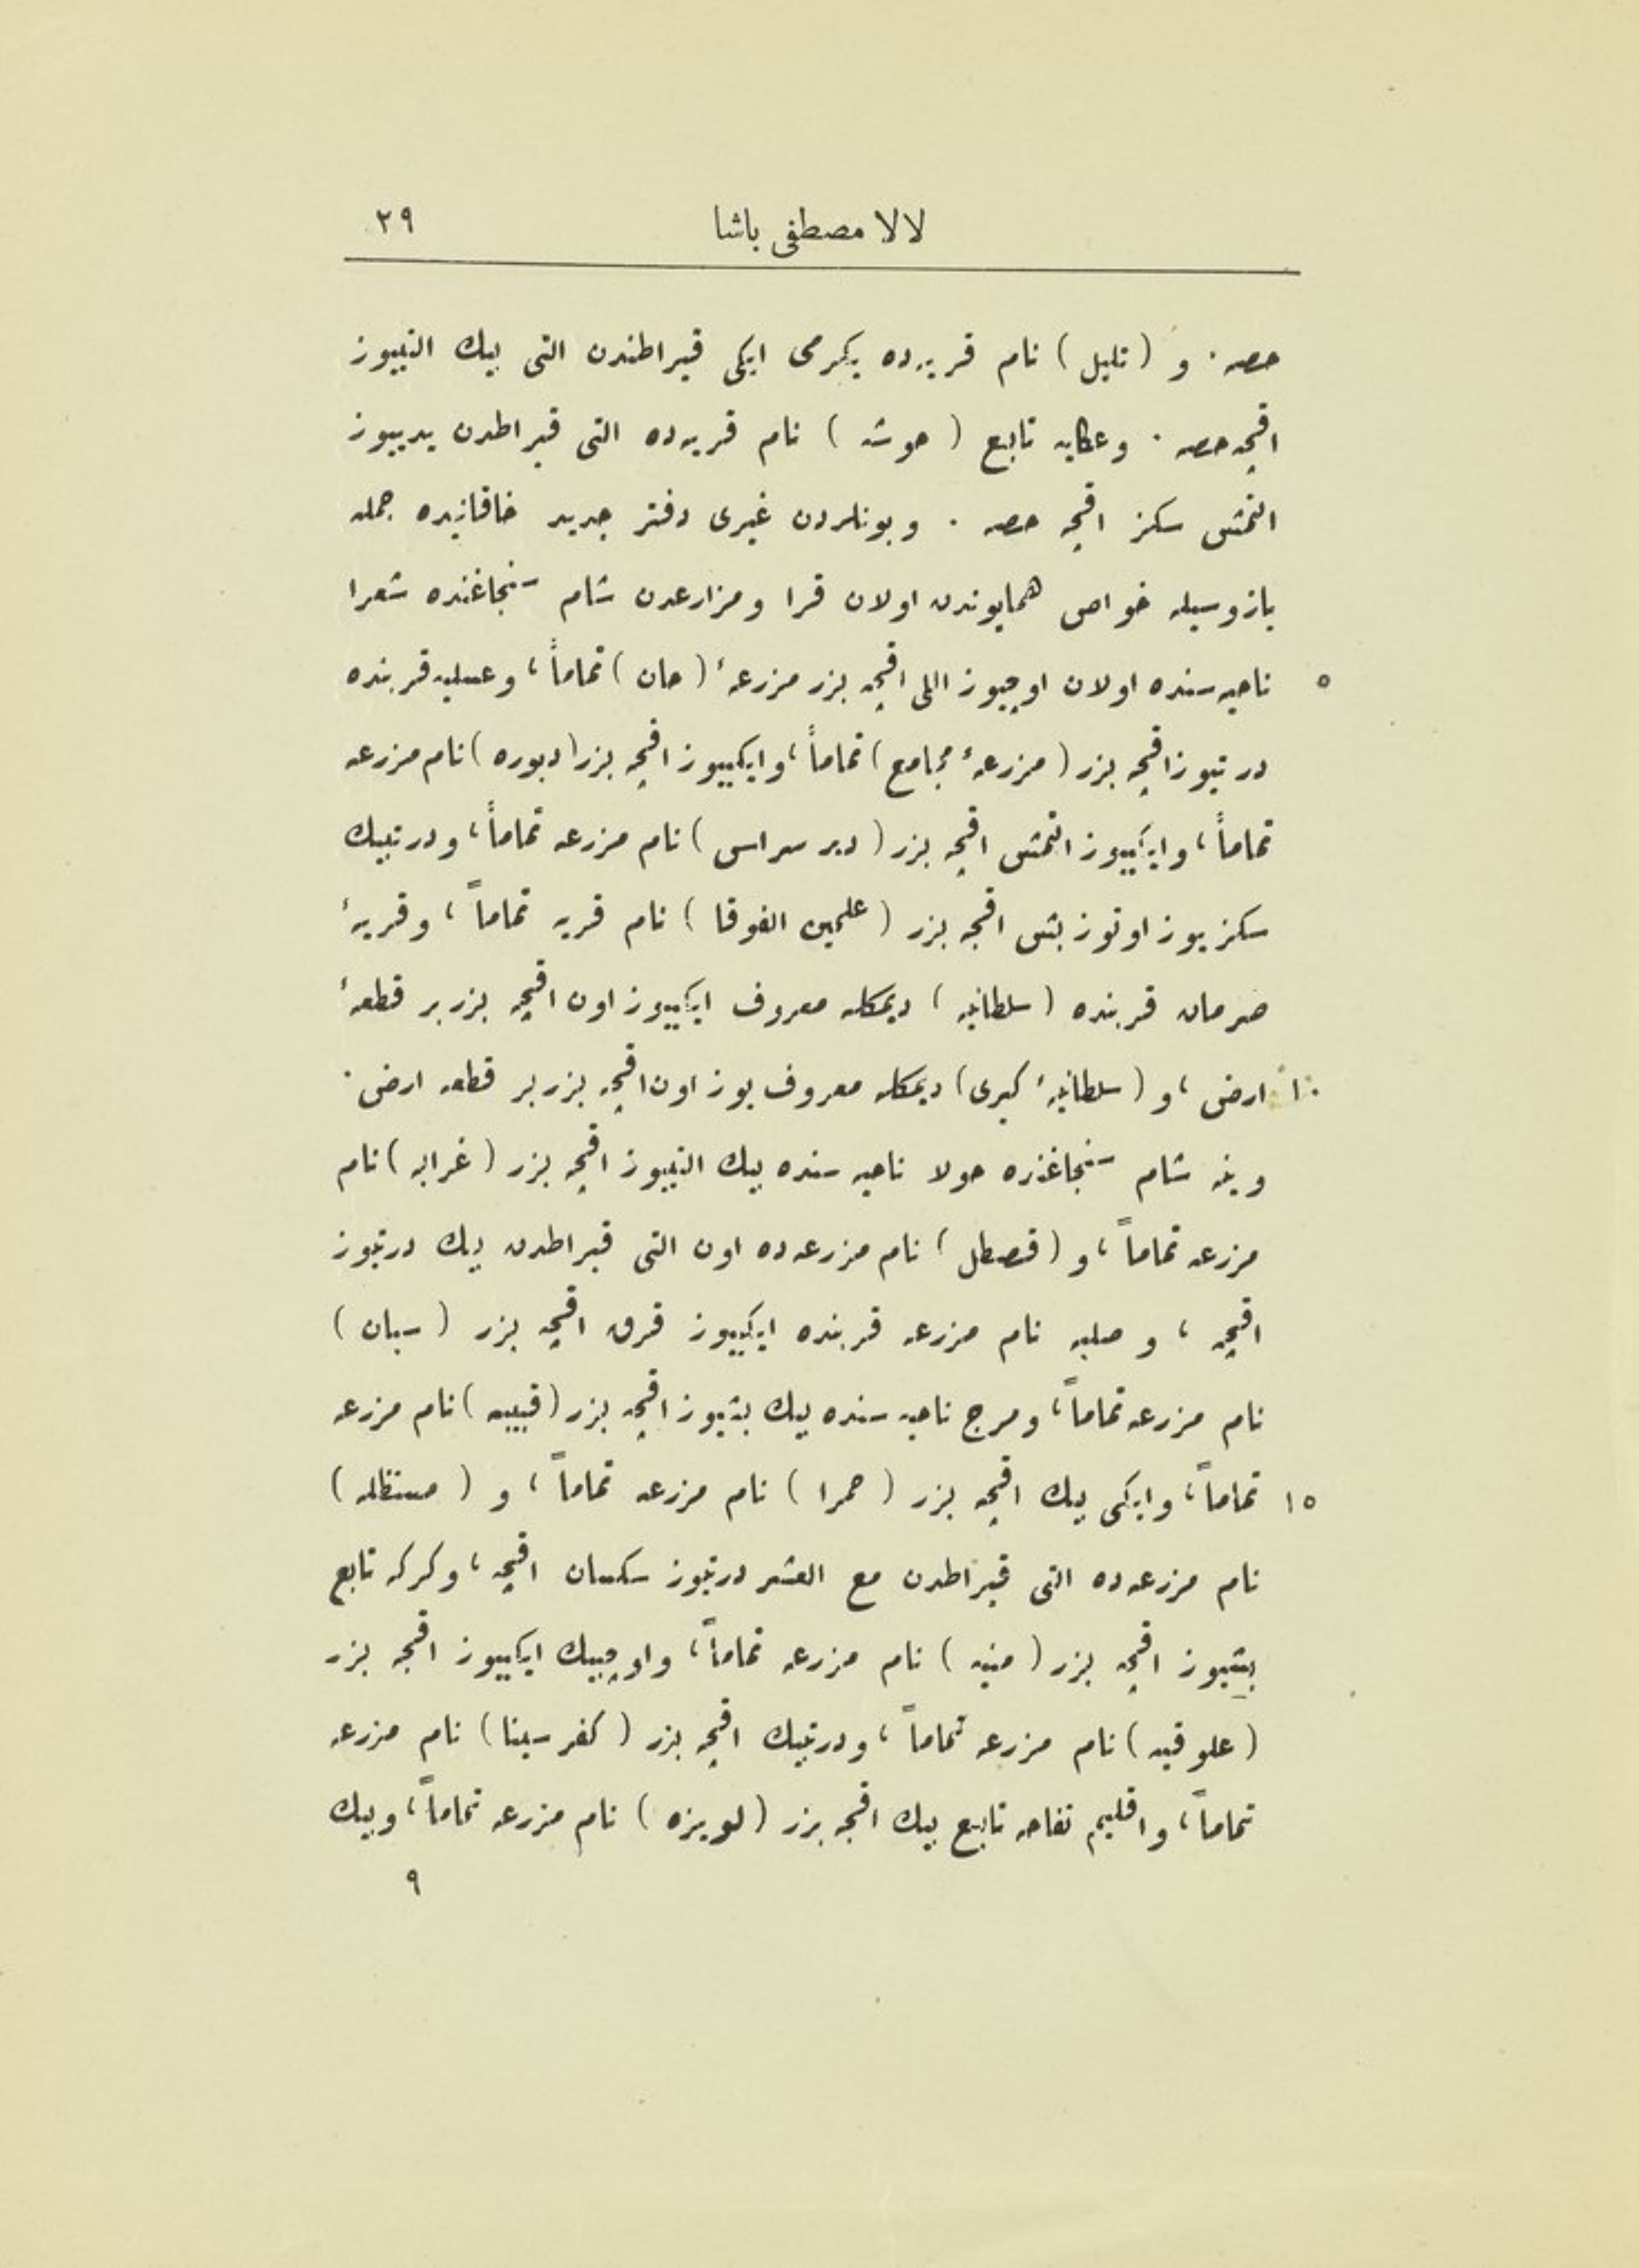 لالا مصطفى باشا ٢٩
حصه . و (تليل) نام قريه‌ده يكرمى ايكى قيراطندن التى بيك التييوز
اقچه حصه . وعكايه تابع (حوشه) نام قريه‌ده التى قيراطدن يدييوز
التمش سكز اقچه حصه . وبونلردن غيرى دفتر جديد خاقانيده جمله
يازوسيله خواص همايوندن اولان قرا ومزارعدن شام سنجاغنده شعرا
٥ ناحيه‌سنده اولان اوچيوز اللى اقچه يزر مزرعهٔ (حان) تماماً، وعسليه قربنده
درتيوز اقچه يزر (مزرعهٔ مجامع) تماماً، وايكييوز اقچه يزر (دبوره) نام مزرعه
تماماً، وايكييوز التمش اقچه يزر (دير سراس) نام مزرعه تماماً، ودرتبيك
سكز يوز اوتوز بش اقچه يزر (علمين الفوقا) نام قريه تماماً، وقريهٔ
صرمان قربنده (سلطانيه) ديمكله معروف ايكييوز اون اقچه يزر بر قطعهٔ
١٠ ارض، و (سلطانيهٔ كبرى) ديمكله معروف يوز اون اقچه يزر بر قطعه ارض .
وينه شام سنجاغنده حولا ناحيه سنده بيك التييوز اقچه يزر (غرابه) نام
مزرعه تماماً، و (قصطل) نام مزرعه‌ده اون التى قيراطدن بيك درتيوز
اقچه ، و صلبه نام مزرعه قربنده ايكييوز قرق اقچه يزر (سبان)
نام مزرعه تماماً، ومرج ناحيه سنده بيك بشيوز اقچه يزر (قبيبه) نام مزرعه
١٥ تماماً، وايكى بيك اقچه يزر (حمرا) نام مزرعه تماماً، و (مستظله)
نام مزرعه‌ده التى قيراطدن مع العشر درتيوز سكسان اقچه، وكركه تابع
بشيوز اقچه يزر (منيه) نام مزرعه تماماً، واوچبيك ايكييوز اقچه يزر
(علوقيه) نام مزرعه تماماً، ودرتبيك اقچه يزر (كفر سينا) نام مزرعه
تماماً، واقليم تفاحه تابع بيك اقچه يزر (لويزه) نام مزرعه تماماً، وبيك
٩